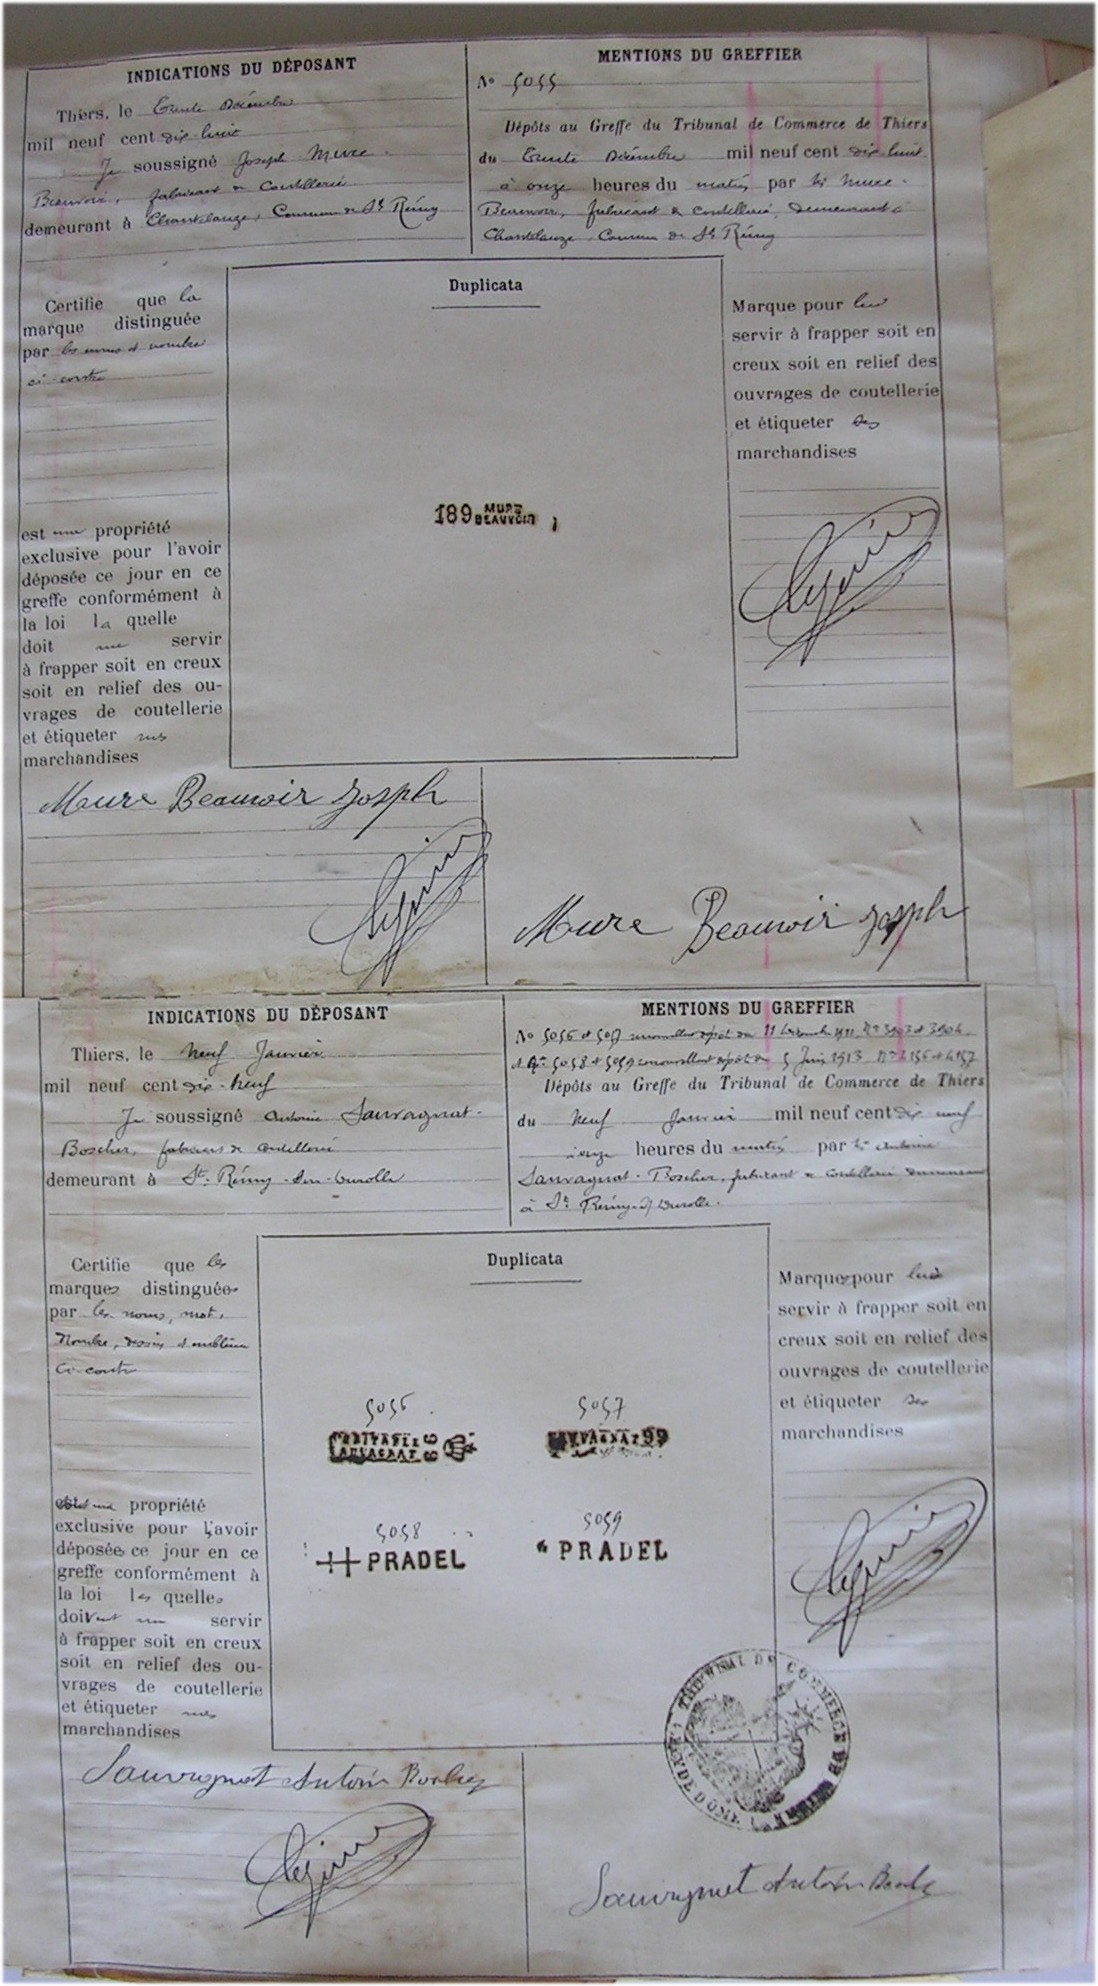 INDICATIONS DU DÉPOSANT
Thiers, le Trente Décembre
mil neuf cent dix huit
Je soussigné Joseph Mure-
Beauvoir, fabricant de Coutellerie
demeurant à Chantelauze, Commune de St Rémy
MENTIONS DU GREFFIER
No 5055
Dépôts au Greffe du Tribunal de Commerce de Thiers
du Trente Décembre mil neuf cent dix huit
à onze heures du matin par Mr Mure-
Beauvoir, fabricant de coutellerie, demeurant à
Chantelauze, Commune de St Rémy
Certifie que la
marque distinguée
par les noms et nombre
ci-contre
est ma propriété
exclusive pour l'avoir
déposée ce jour en ce
greffe conformément à
la loi la quelle
doit me servir
à frapper soit en creux
soit en relief des ou-
vrages de coutellerie
et étiqueter mes
marchandises
Duplicata
189 MURE
BEAUVOIR
Marque pour lui
servir à frapper soit en
creux soit en relief des
ouvrages de coutellerie
et étiqueter ses
marchandises
Mure Beauvoir Joseph
Mure Beauvoir Joseph
INDICATIONS DU DÉPOSANT
Thiers, le Neuf Janvier
mil neuf cent dix-neuf
Je soussigné Antoine Sauvagnat-
Boscher, fabricant de coutellerie
demeurant à St-Rémy-sur-Durolle
MENTIONS DU GREFFIER
No 5056 et 5057 renouvellent dépôt du 11 1911 Nos 3903 et 3904
et Nos 5058 et 5059 renouvellent dépôt du 5 Juin 1913 Nos 4156 et 4157
Dépôts au Greffe du Tribunal de Commerce de Thiers
du Neuf Janvier mil neuf cent dix neuf
à onze heures du matin par Mr Antoine
Sauvagnat-Boscher, fabricant de coutellerie demeurant
à St Rémy-s/ Durolle.
Certifie que les
marques distinguées
par les noms, mot,
Nombre, dessin et emblème
Ci-contre
sont ma propriété
exclusive pour l'avoir
déposées ce jour en ce
greffe conformément à
la loi les quelles
doivent me servir
à frapper soit en creux
soit en relief des ou-
vrages de coutellerie
et étiqueter mes
marchandises
Duplicata
5056 5057
VERITABLE
SAUVAGNAT 99
SAUVAGNAT 99
5058 5059
PRADEL PRADEL
Marques pour lui
servir à frapper soit en
creux soit en relief des
ouvrages de coutellerie
et étiqueter ses
marchandises
TRIBUNAL DE COMMERCE DE THIERS
PUY DE DÔME
Sauvagnat Antoine
Sauvagnat Antoine